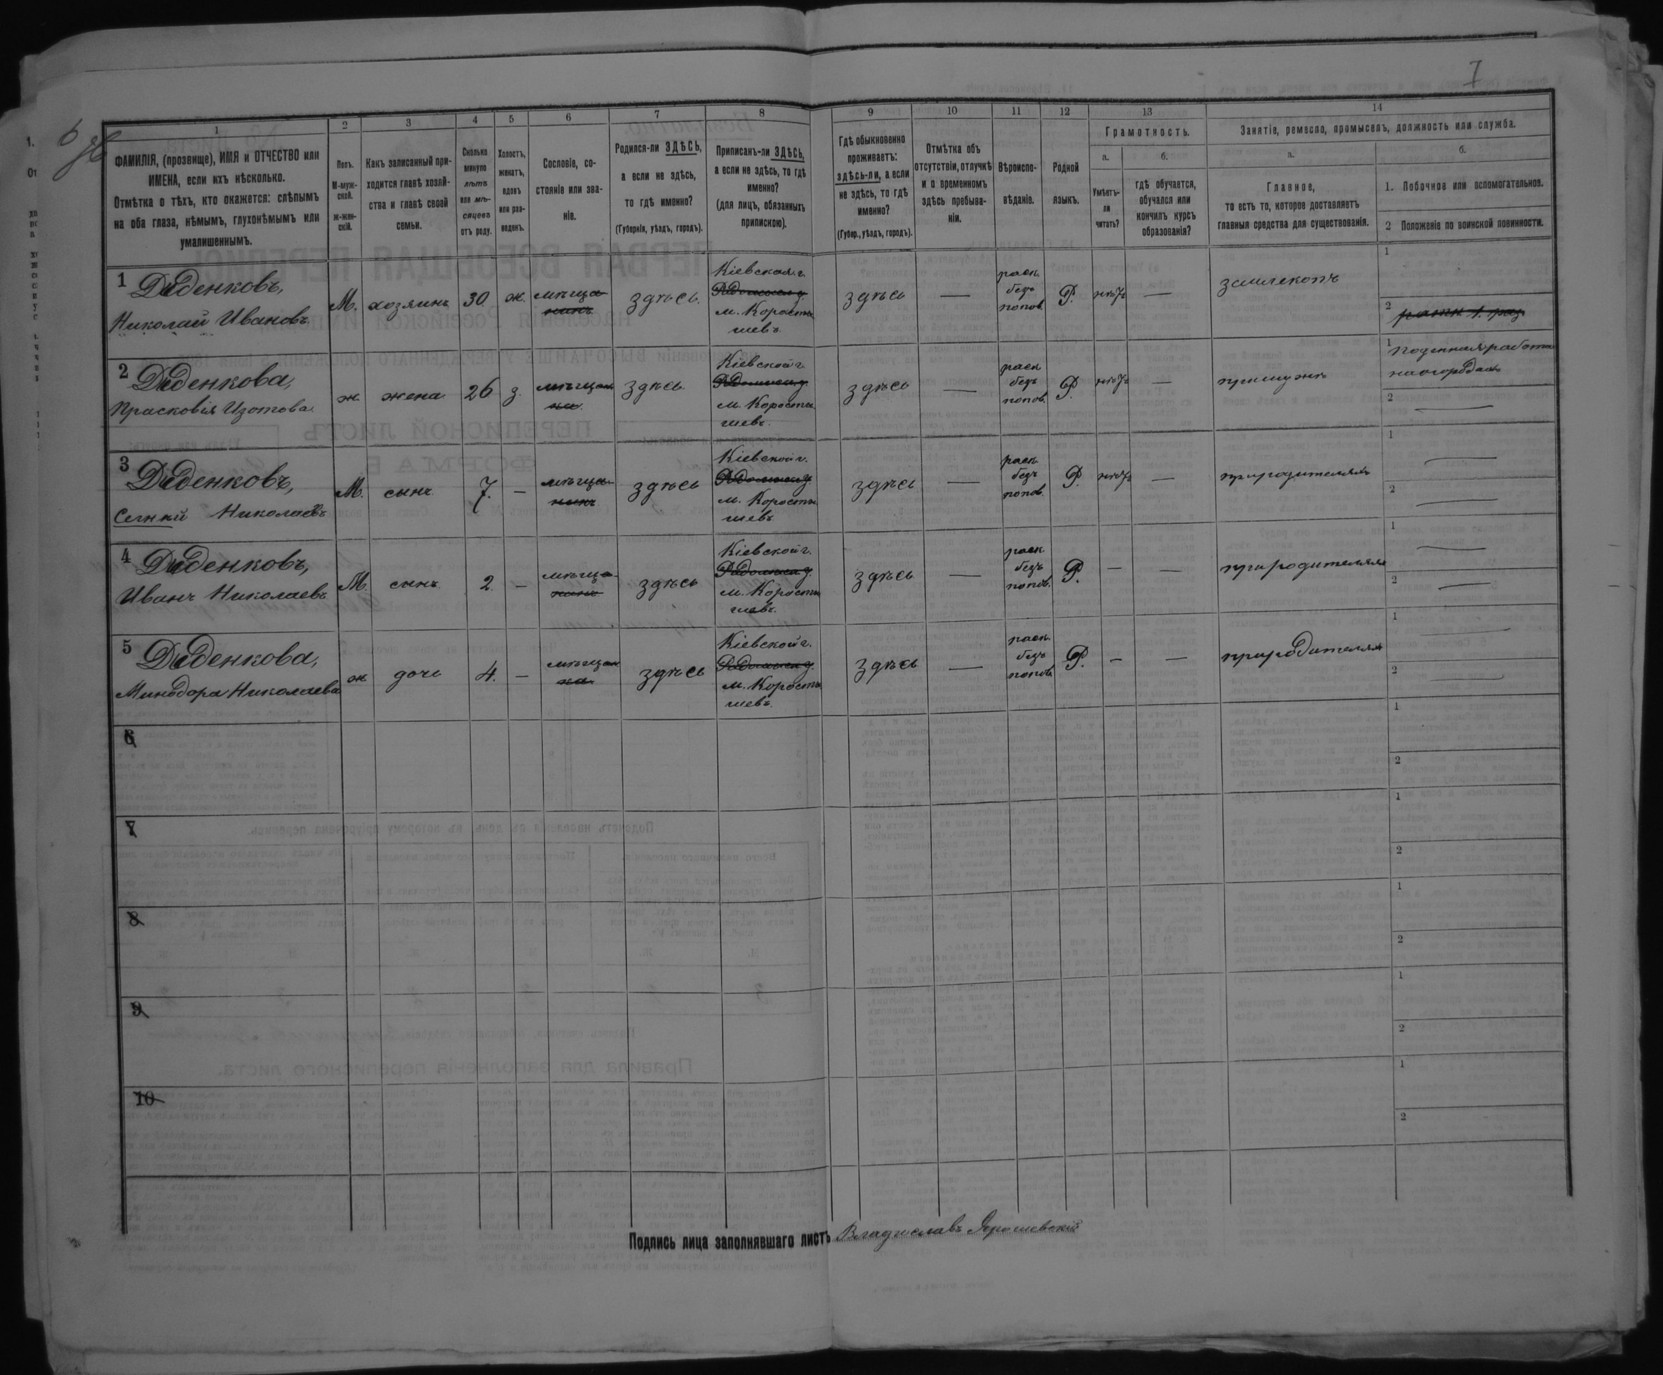 7
1 2 3 4 5 6 7 8 9 10 11 12 13 14
ФАМИЛІЯ, (прозвище), ИМЯ и ОТЧЕСТВО или
ИМЕНА, если ихъ нѣсколько.
Отмѣтка о тѣхъ, кто окажется: слѣпымъ
на оба глаза, нѣмымъ, глухонѣмымъ или
умалишеннымъ.
Полъ.
М-муж-
ской.
ж-жен-
скій.
Какъ записанный при-
ходится главѣ хозяй-
ства и главѣ своей
семьи.
Сколько
минуло
лѣтъ
или мѣ-
сяцевъ
отъ роду.
Холостъ,
женатъ,
вдовъ
или раз-
веденъ.
Сословіе, со-
стояніе или зва-
ніе.
Родился-ли ЗДѢСЬ,
а если не здѣсь,
то гдѣ именно?
(Губернія, уѣздъ, городъ).
Приписанъ-ли ЗДѢСЬ,
а если не здѣсь, то гдѣ
именно?
(для лицъ, обязанныхъ
припискою).
Гдѣ обыкновенно
проживаетъ:
здѣсь-ли, а если
не здѣсь, то гдѣ
именно?
(Губер., уѣздъ, городъ).
Отмѣтка объ
отсутствіи, отлучкѣ
и о временномъ
здѣсь пребыва-
ніи.
Вѣроиспо-
вѣданіе.
Родной
языкъ.
Грамотность.
а. б.
Умѣетъ-
ли
читать?
гдѣ обучается,
обучался или
кончилъ курсъ
образованія?
Занятіе, ремесло, промыселъ, должность или служба.
а. б.
Главное,
то есть то, которое доставляетъ
главныя средства для существованія.
1. Побочное или вспомогательное.
2 Положеніе по воинской повинности.
1 Диденковъ,
Николай Ивановъ
М. хозяинъ 30 ж. мѣща-
нинъ
здѣсь
Кіевская г.
Радомыс у.
м. Коросты
шевъ
здѣсь —
раск.
безъ
попов.
Р. нѣтъ —
землекопъ
1
2 ратн 1 раз
2 Диденкова,
Прасковія Изотова
ж. жена 26 з. мѣщан
ка
здѣсь
Кіевской г.
Радомыс у.
м. Коросты
шевъ.
здѣсь —
раск
безъ
попов.
Р. нѣтъ —
при мужѣ
1 поденная работа
на огородахъ
2 —
3 Диденковъ,
Николаевъ
М. сынъ 7. — мѣща-
нинъ
здѣсь
Кіевской г.
Радомыс у
м. Коросты
шевъ
здѣсь —
раск.
безъ
попов.
Р. нѣтъ —
при родителях
1 —
2 —
4 Диденковъ,
Иванъ Николаевъ
М. сынъ 2. — мѣща
нинъ
здѣсь
Кіевской г.
Радомыс у
м. Коросты
шевъ.
здѣсь —
раск.
безъ
попов.
Р. — —
при родителях
1 —
2 —
5 Диденкова,
Минодора Николаева
ж дочь 4. — мѣщан
ка
здѣсь
Кіевской г.
Радомыс у.
м. Коросты
шевъ.
здѣсь —
раск.
безъ
попов.
Р. — —
при родителях
1 —
2 —
6
1
2
7
1
2
8
1
2
9
1
2
10
1
2
Подпись лица заполнявшаго листъ Владиславъ Ярошевскій